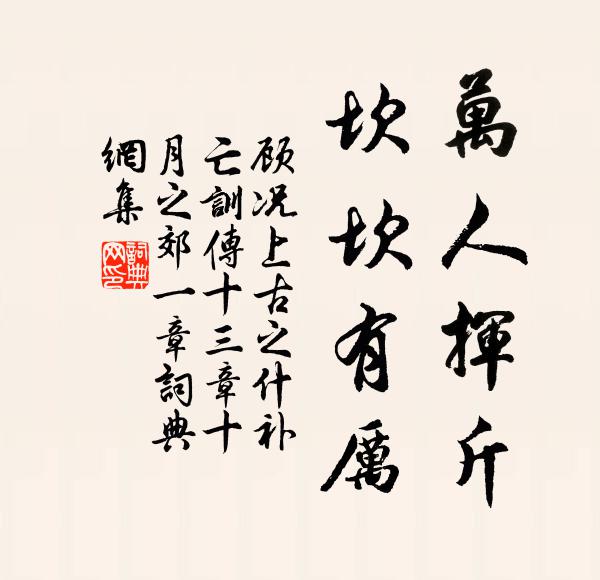 萬人揮斤
坎坎有厲
顾况上古之什补
亡訓傳十三章十
月之郊一章詞典
網集
詞典
网印